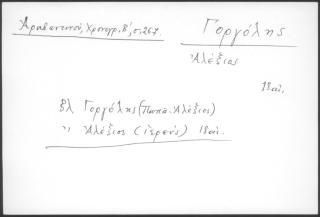 Ἀραβαντινοῦ, Χρονογρ. Β', σ. 267.
Γοργόλης
Ἀλέξιος
18 αἰ.
βλ Γοργόλης (Παπα-Ἀλέξιος)
" Ἀλέξιος (ἱερεύς) 18 αἰ.